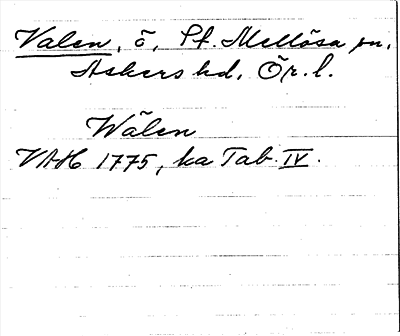 Valen, ö, St. Mellösa sn,
Askers hd, Ör. l.
Wålen
VAH 1775, ka Tab. IV.